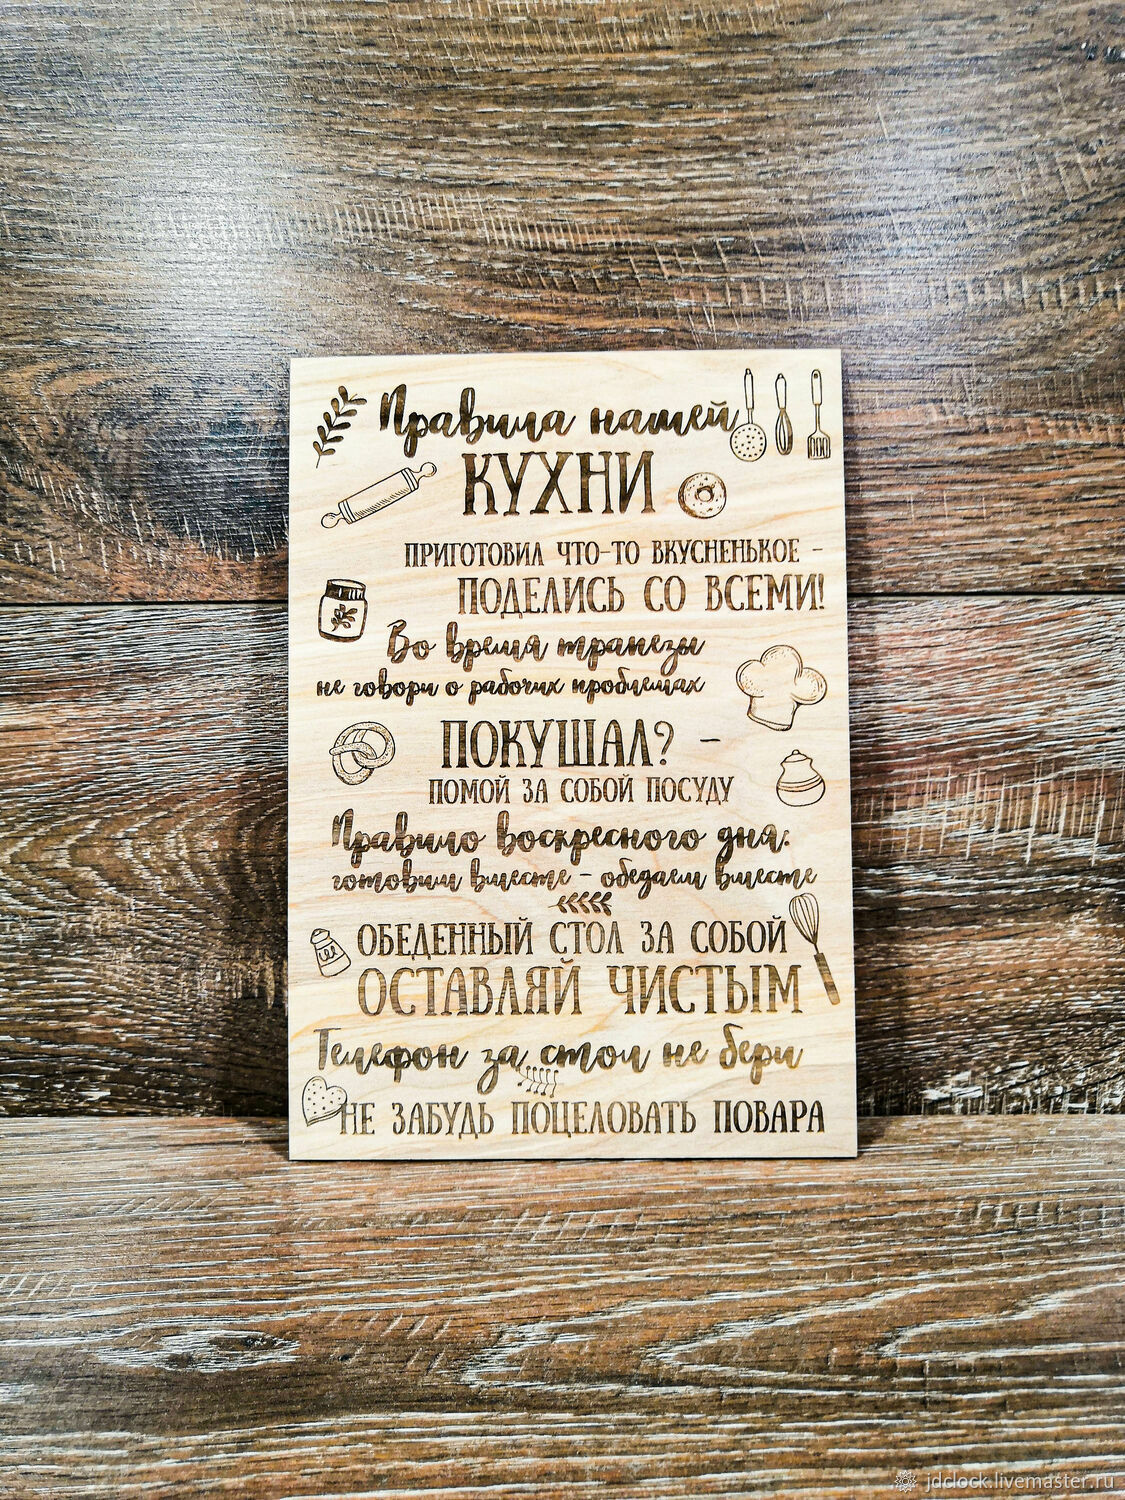 Правила нашей
КУХНИ
ПРИГОТОВИЛ ЧТО-ТО ВКУСНЕНЬКОЕ -
ПОДЕЛИСЬ СО ВСЕМИ!
Во время трапезы
не говори о рабочих проблемах
ПОКУШАЛ? -
ПОМОЙ ЗА СОБОЙ ПОСУДУ
Правило воскресного дня:
готовим вместе - обедаем вместе
ОБЕДЕННЫЙ СТОЛ ЗА СОБОЙ
ОСТАВЛЯЙ ЧИСТЫМ
Телефон за стол не бери
НЕ ЗАБУДЬ ПОЦЕЛОВАТЬ ПОВАРА
jdclock.livemaster.ru